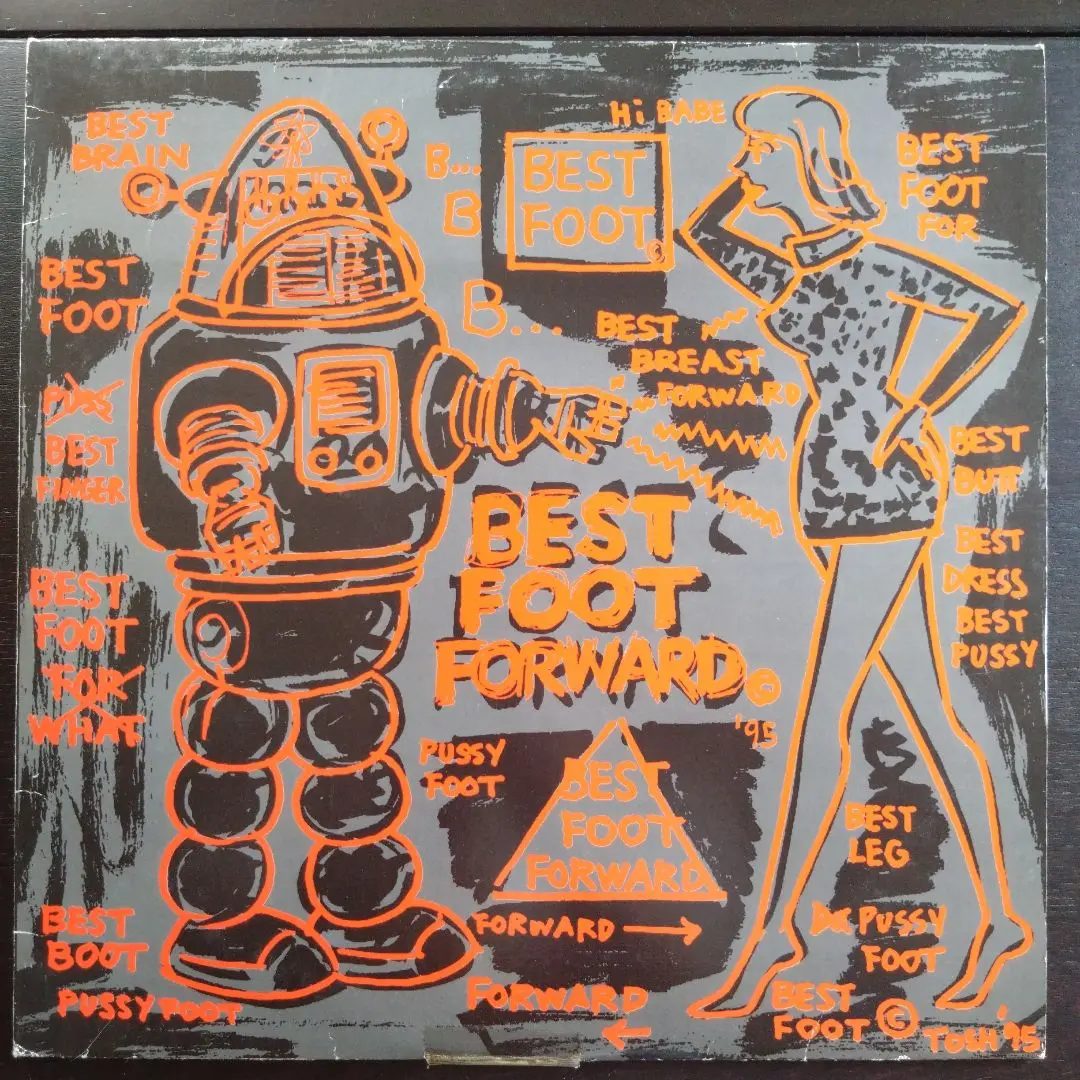 BEST
BRAIN
©
B...
B
B...
Hi BABE
BEST
FOOT
©
BEST
FOOT
FOR
BEST
FOOT
BEST
BREAST
FORWARD
BEST
FINGER
BEST
BUTT
BEST
FOOT
FORWARD©
'95
BEST
DRESS
BEST
PUSSY
BEST
FOOT
FOR
WHAT
PUSSY
FOOT
BEST
FOOT
FORWARD
BEST
LEG
FORWARD →
BEST
BOOT
PUSSY
FOOT
PUSSY FOOT
FORWARD
←
BEST
FOOT ©
TOSH '95